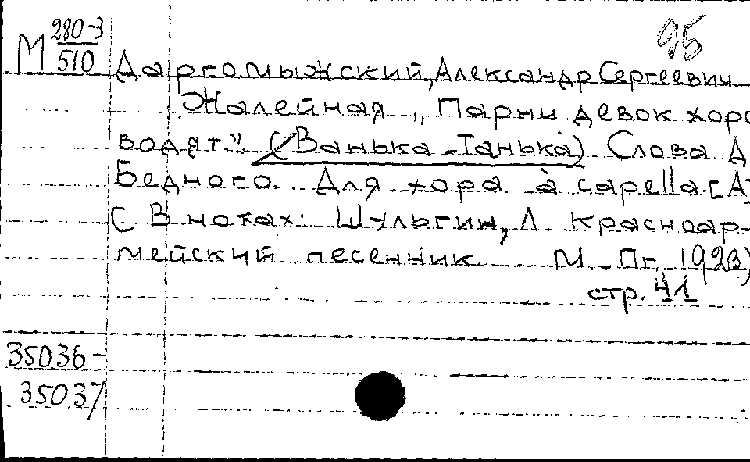 М 280-3/510
95
Даргомыжский, Александр Сергеевич
Жалейная „Парни девок хоро
водят". (Ванька-Танька) Слова Д
Бедного. Для хора a capella [А
(В нотах: Шульгин, Л. Красноар-
мейский песенник М.-Пг, 1923)
стр. 41
35036-
35037